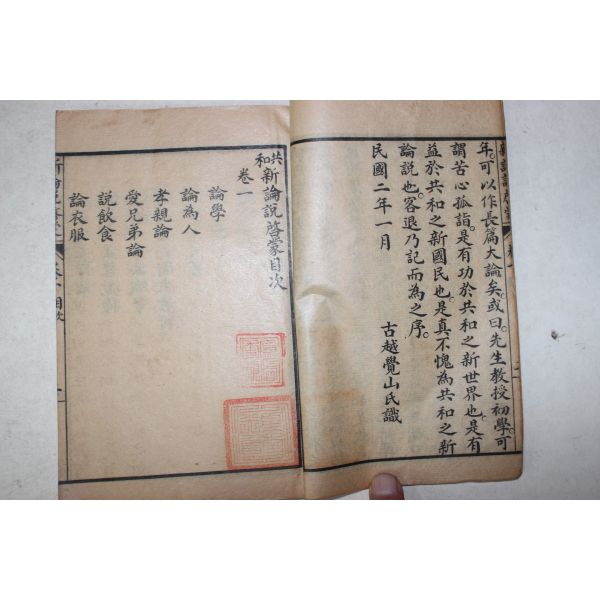 年。可以作長篇大論矣。或曰。先生教授初學。可
謂苦心孤詣。是有功於共和之新世界也。是有
益於共和之新國民也。是真不愧為共和之新
論說也。客退乃記而為之序。
民國二年一月
古越覺山氏識
共和新論說啓蒙目次
卷一
論學
論為人
孝親論
愛兄弟論
說飲食
論衣服